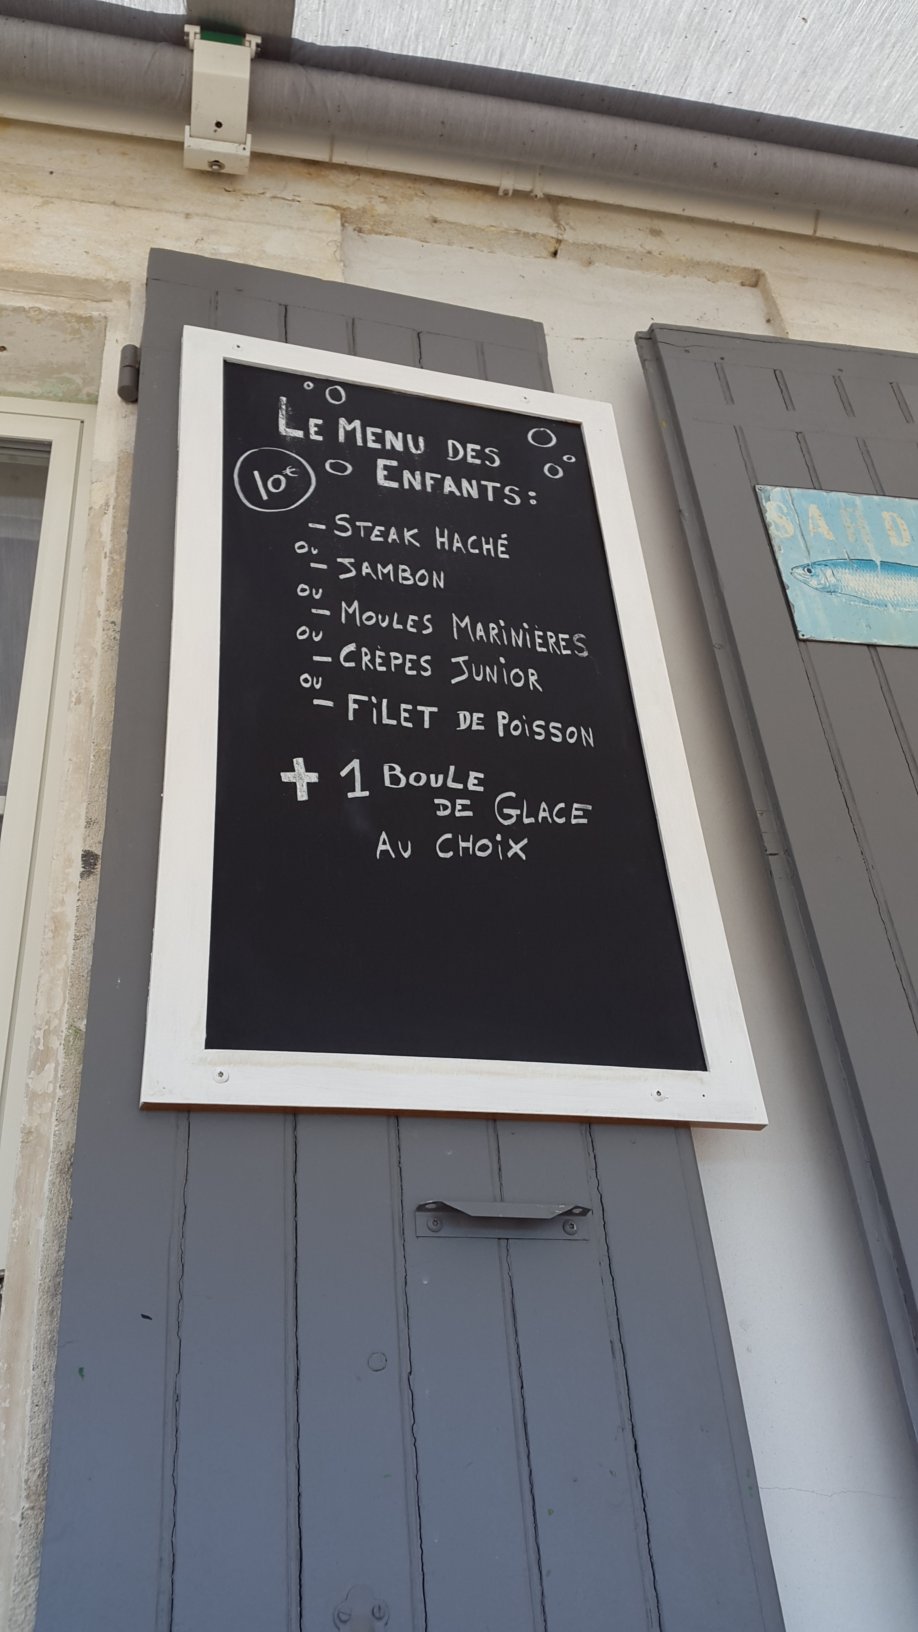 Le Menu des
Enfants:
10€
- Steak Haché
ou
- Jambon
ou
- Moules Marinières
ou
- Crèpes Junior
ou
- Filet de Poisson
+ 1 Boule
de Glace
au choix
SARD